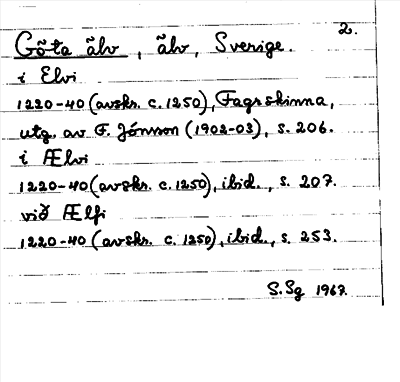 2.
Göta älv, älv, Sverige.
i Elvi
1220-40 (avskr. c. 1250), Fagrskinna,
utg. av F. Jónsson (1902-03), s. 206.
i Ælvi
1220-40 (avskr. c. 1250), ibid., s. 207.
við Ælfi
1220-40 (avskr. c. 1250), ibid., s. 253.
S.Sg 1967.